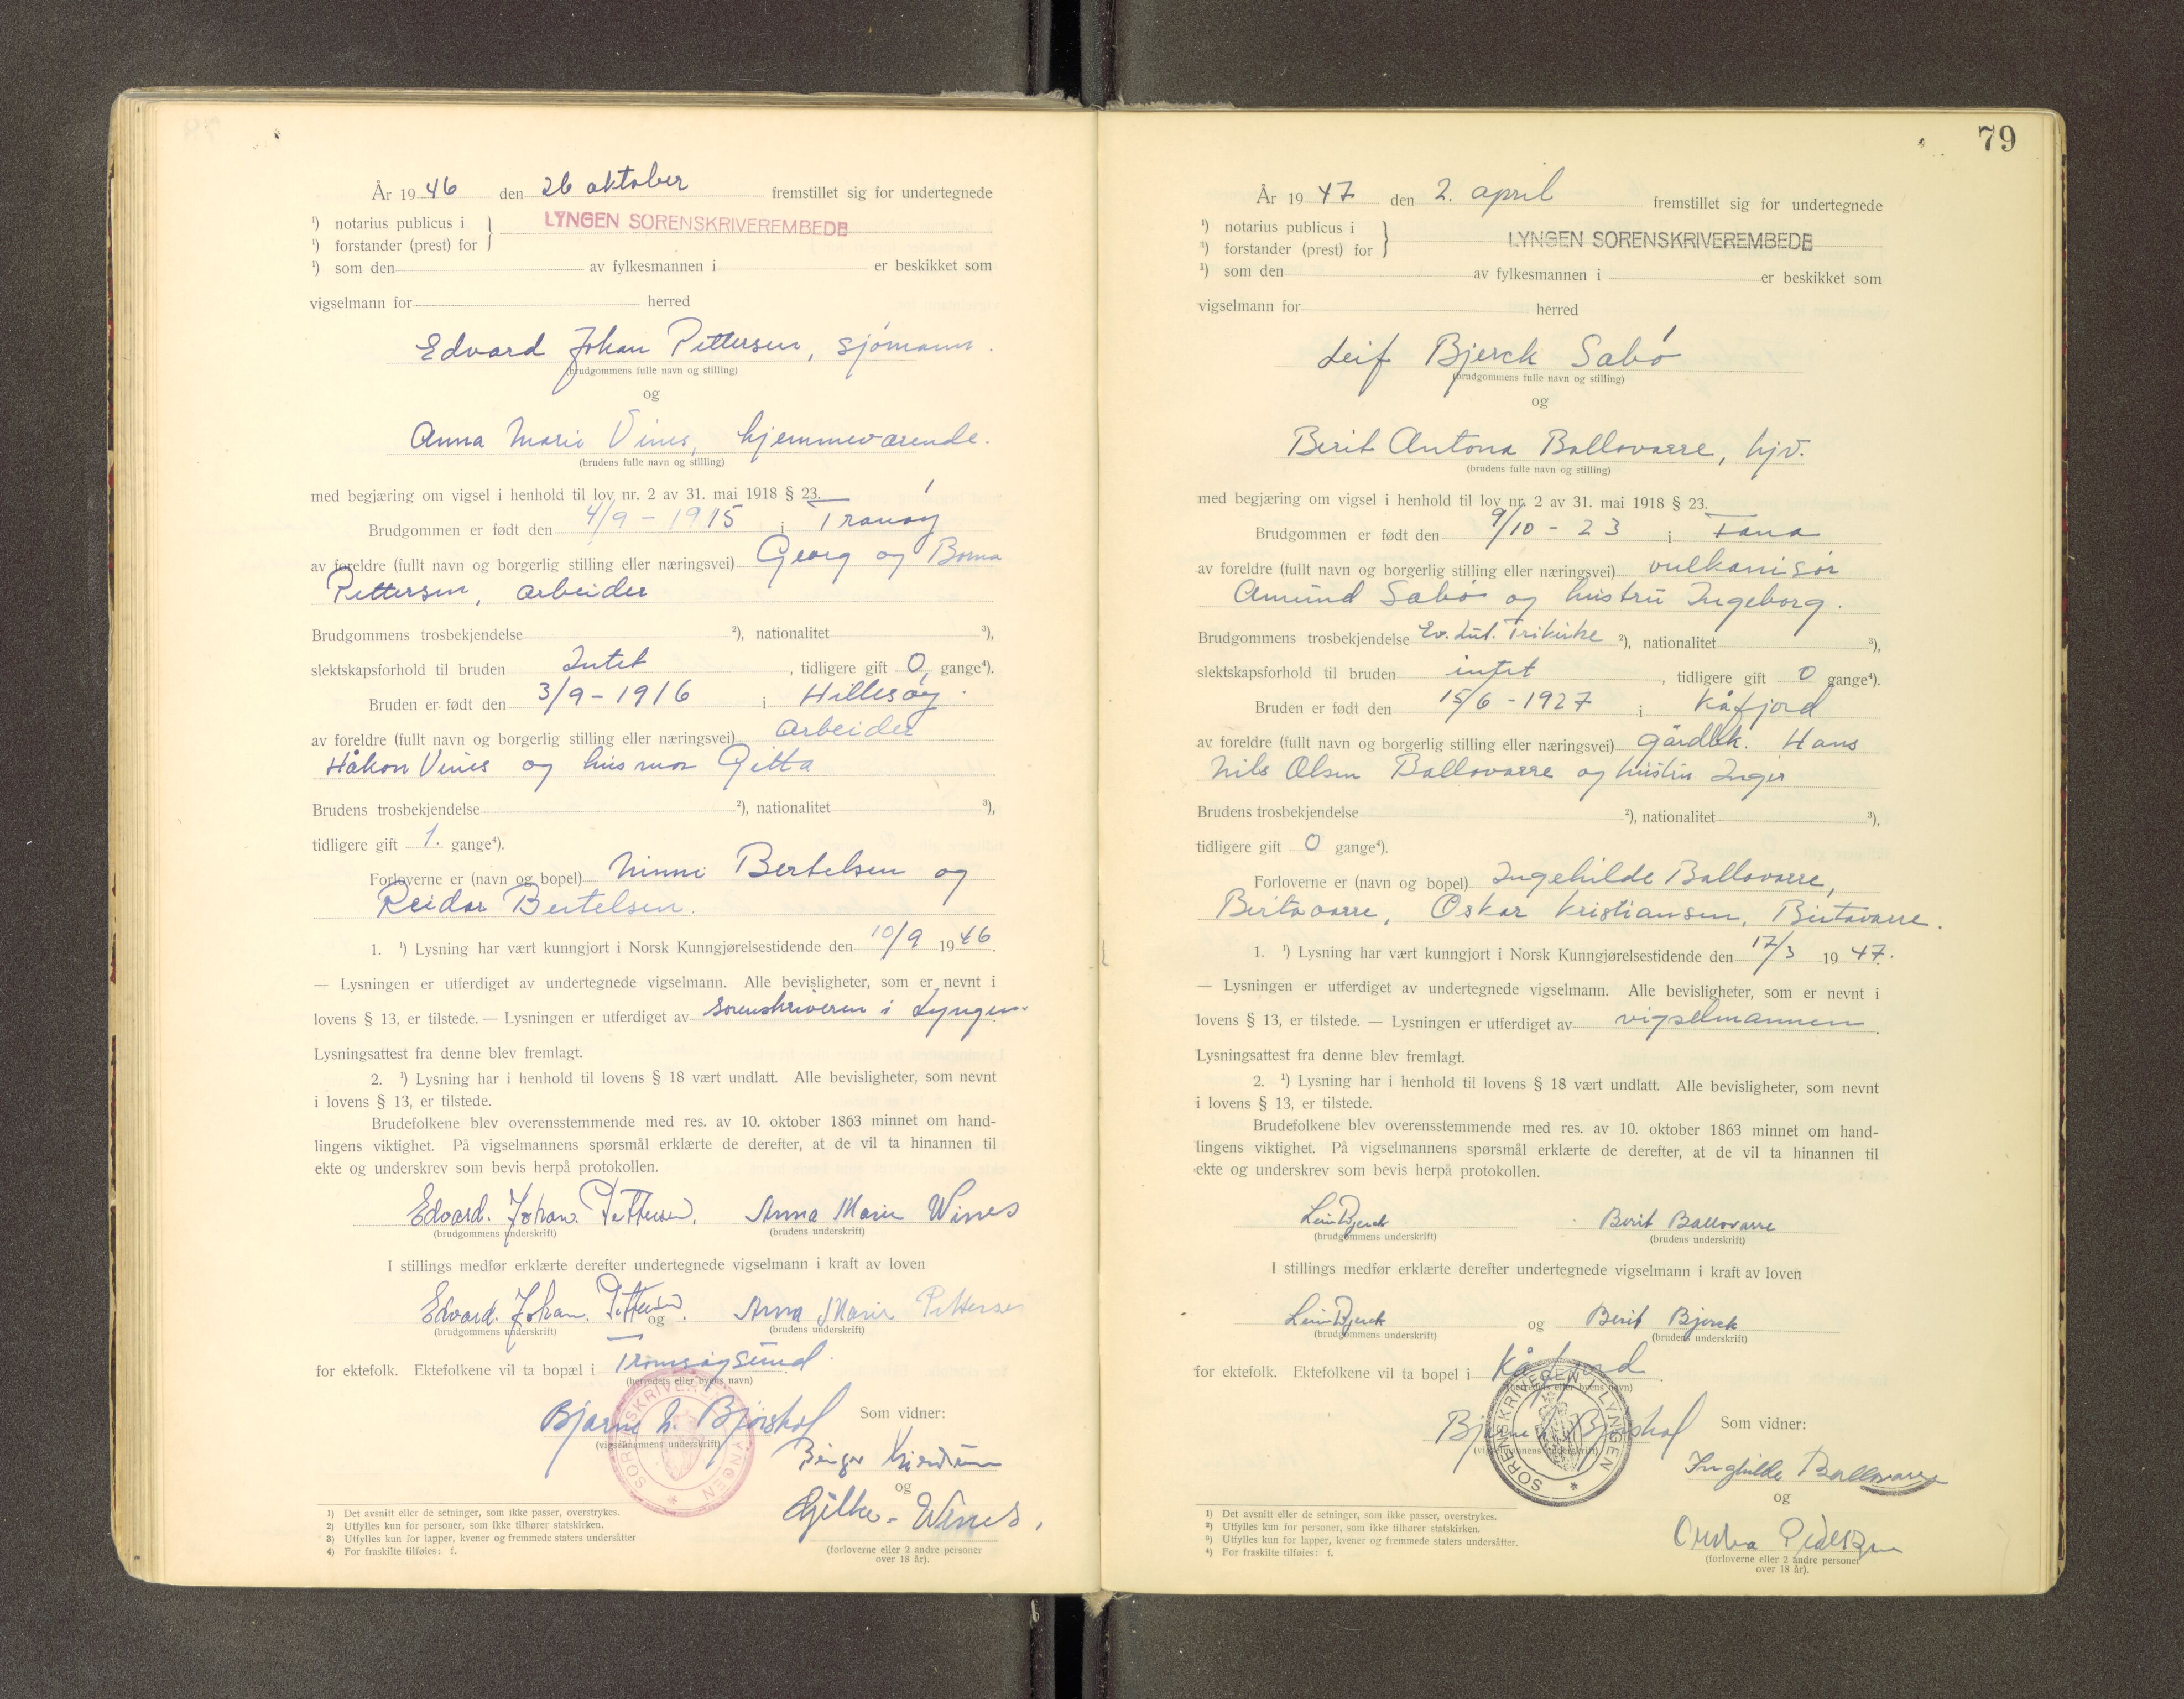 År 19 46 den 26 oktober fremstillet sig for undertegnede
¹) notarius publicus i
¹) forstander (prest) for
LYNGEN SORENSKRIVEREMBEDE
¹) som den av fylkesmannen i er beskikket som
vigselmann for herred
Edvard Johan Pettersen, sjømann.
(brudgommens fulle navn og stilling)
og
Anna Marie Vines, hjemmeværende.
(brudens fulle navn og stilling)
med begjæring om vigsel i henhold til lov nr. 2 av 31. mai 1918 § 23.
Brudgommen er født den 4/9 - 1915 i Tranøy
av foreldre (fullt navn og borgerlig stilling eller næringsvei) Georg og Borna
Pettersen, arbeider
Brudgommens trosbekjendelse ²), nationalitet ³),
slektskapsforhold til bruden Intet, tidligere gift 0, gange⁴).
Bruden er født den 3/9 - 1916 i Hillesøy.
av foreldre (fullt navn og borgerlig stilling eller næringsvei) arbeider
Håkon Vines og husmor Gitta
Brudens trosbekjendelse ²), nationalitet ³),
tidligere gift 1. gange⁴).
Forloverne er (navn og bopel) Ninni Bertelsen og
Reidar Bertelsen.
1. ¹) Lysning har vært kunngjort i Norsk Kunngjørelsestidende den 10/9 1946.
— Lysningen er utferdiget av undertegnede vigselmann. Alle bevisligheter, som er nevnt i
lovens § 13, er tilstede. — Lysningen er utferdiget av sorenskriveren i Lyngen.
Lysningsattest fra denne blev fremlagt.
2. ¹) Lysning har i henhold til lovens § 18 vært undlatt. Alle bevisligheter, som nevnt
i lovens § 13, er tilstede.
Brudefolkene blev overensstemmende med res. av 10. oktober 1863 minnet om hand-
lingens viktighet. På vigselmannens spørsmål erklærte de derefter, at de vil ta hinannen til
ekte og underskrev som bevis herpå protokollen.
Edvard. Johan. Pettersen. Anna Marie Wines
(brudgommens underskrift) (brudens underskrift)
I stillings medfør erklærte derefter undertegnede vigselmann i kraft av loven
Edvard. Johan. Pettersen. og Anna Marie Pettersen
(brudgommens underskrift) (brudens underskrift)
for ektefolk. Ektefolkene vil ta bopæl i Tromsøysund.
(herredets eller byens navn)
SORENSKRIVEREN I LYNGEN
Bjarne N. Bjørshol Som vidner:
(vigselmannens underskrift)
Birger
og
Wines,
(forloverne eller 2 andre personer
over 18 år).
1) Det avsnitt eller de setninger, som ikke passer, overstrykes.
2) Utfylles kun for personer, som ikke tilhører statskirken.
3) Utfylles kun for lapper, kvener og fremmede staters undersåtter
4) For fraskilte tilføies: f.
79
År 19 47 den 2. april fremstillet sig for undertegnede
¹) notarius publicus i
¹) forstander (prest) for
LYNGEN SORENSKRIVEREMBEDE
¹) som den av fylkesmannen i er beskikket som
vigselmann for herred
Leif Bjerck Sabø
(brudgommens fulle navn og stilling)
og
Berit Antona Ballovarre, hjv.
(brudens fulle navn og stilling)
med begjæring om vigsel i henhold til lov nr. 2 av 31. mai 1918 § 23.
Brudgommen er født den 9/10 - 23 i Fana
av foreldre (fullt navn og borgerlig stilling eller næringsvei) vulkanisør
Amund Sabø og hustru Ingeborg.
Brudgommens trosbekjendelse Ev. lut. Frikirke ²), nationalitet ³),
slektskapsforhold til bruden intet, tidligere gift 0 gange⁴).
Bruden er født den 15/6 - 1927 i Kåfjord
av foreldre (fullt navn og borgerlig stilling eller næringsvei) gårdbk. Hans
Nils Olsen Ballovarre og hustru Inger
Brudens trosbekjendelse ²), nationalitet ³),
tidligere gift 0 gange⁴).
Forloverne er (navn og bopel) Ingehilde Ballovarre,
Birtavarre, Oskar Kristiansen, Birtavarre.
1. ¹) Lysning har vært kunngjort i Norsk Kunngjørelsestidende den 17/3 19 47.
— Lysningen er utferdiget av undertegnede vigselmann. Alle bevisligheter, som er nevnt i
lovens § 13, er tilstede. — Lysningen er utferdiget av vigselmannen.
Lysningsattest fra denne blev fremlagt.
2. ¹) Lysning har i henhold til lovens § 18 vært undlatt. Alle bevisligheter, som nevnt
i lovens § 13, er tilstede.
Brudefolkene blev overensstemmende med res. av 10. oktober 1863 minnet om hand-
lingens viktighet. På vigselmannens spørsmål erklærte de derefter, at de vil ta hinannen til
ekte og underskrev som bevis herpå protokollen.
Leif Bjerck Berit Ballovarre
(brudgommens underskrift) (brudens underskrift)
I stillings medfør erklærte derefter undertegnede vigselmann i kraft av loven
Leif Bjerck og Berit Bjerck
(brudgommens underskrift) (brudens underskrift)
for ektefolk. Ektefolkene vil ta bopel i Kåfjord
(herredets eller byens navn)
SORENSKRIVEREN I LYNGEN
Bjarne N. Bjørshol Som vidner:
(vigselmannens underskrift)
Inghilde Ballovarre
og
Pedersen
(forloverne eller 2 andre personer
over 18 år).
¹) Det avsnitt eller de setninger, som ikke passer, overstrykes.
²) Utfylles kun for personer, som ikke tilhører statskirken.
³) Utfylles kun for lapper, kvener og fremmede staters undersåtter.
⁴) For fraskilte tilføies: f.